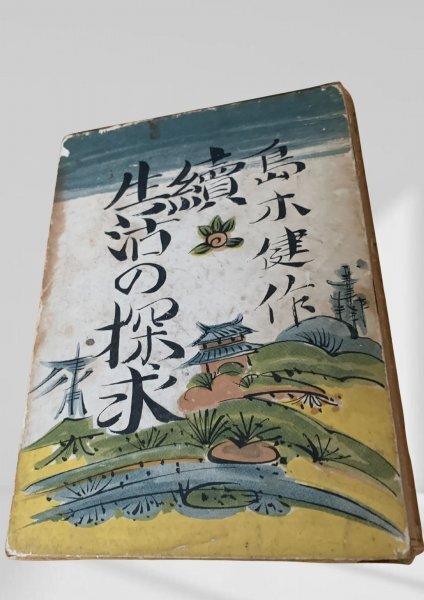 島木健作
續
生活の探求